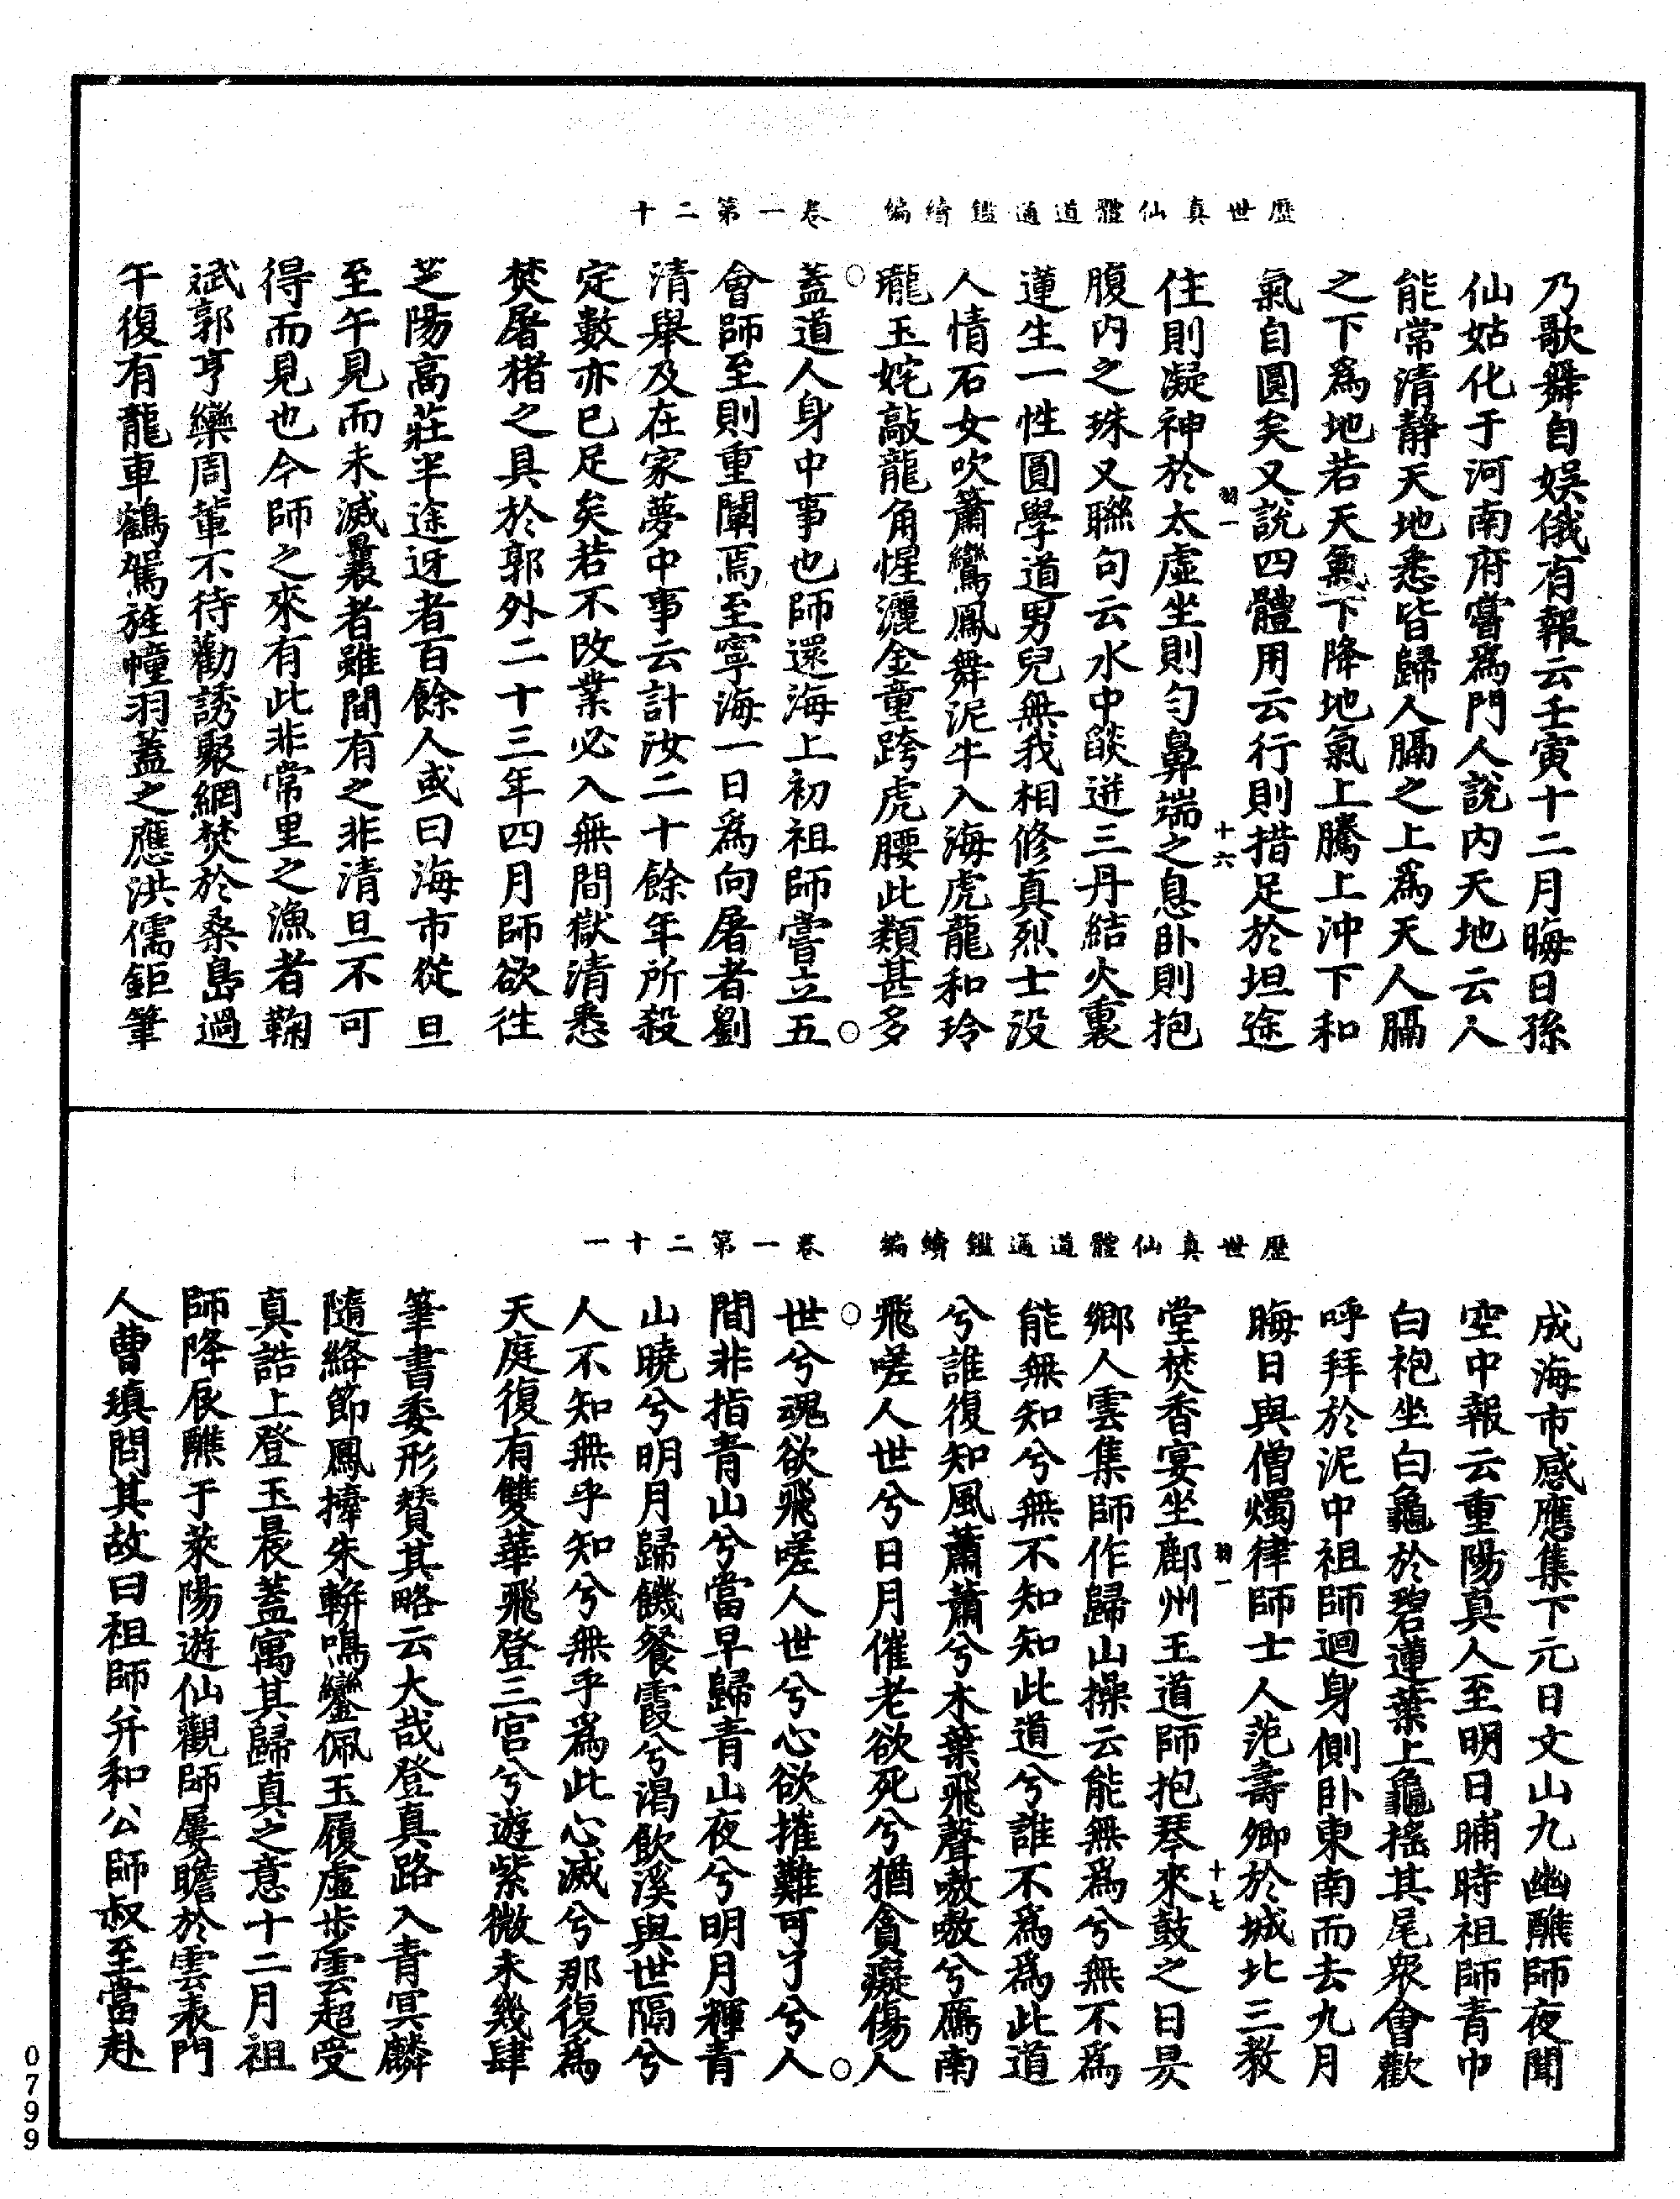 歷世真仙體道通鑑續編　卷一第二十
乃歌舞自娛俄有報云壬寅十二月晦日孫
仙姑化于河南府嘗為門人說內天地云人
能常清靜天地悉皆歸人膈之上為天人膈
之下為地若天氣下降地氣上騰上沖下和
氣自圓矣又說四體用云行則措足於坦途
羽一　十六
住則凝神於太虛坐則勻鼻端之息臥則抱
腹內之珠又聯句云水中燄迸三丹結火裏
蓮生一性圓學道男兒無我相修真烈士沒
人情石女吹簫鸞鳳舞泥牛入海虎龍和玲
瓏玉姹敲龍角惺灑金童跨虎腰此類甚多
蓋道人身中事也師還海上初祖師嘗立五
會師至則重闡焉至寧海一日為向屠者劉
清舉及在家夢中事云計汝二十餘年所殺
定數亦已足矣若不改業必入無間獄清悉
焚屠猪之具於郭外二十三年四月師欲往
芝陽高莊半途迓者百餘人或曰海市從旦
至午見而未滅曩者雖間有之非清旦不可
得而見也今師之來有此非常里之漁者鞠
斌郭亨欒周輩不待勸誘聚網焚於桑島過
午復有龍車鶴駕旌幢羽蓋之應洪儒鉅筆
歷世真仙體道通鑑續編　卷一第二十一
成海市感應集下元日文山九幽醮師夜聞
空中報云重陽真人至明日晡時祖師青巾
白袍坐白龜於碧蓮葉上龜搖其尾眾會歡
呼拜於泥中祖師迴身側臥東南而去九月
晦日與僧燭律師士人范壽卿於城北三教
羽一　十七
堂焚香宴坐鄜州王道師抱琴來鼓之日昃
鄉人雲集師作歸山操云能無為兮無不為
能無知兮無不知知此道兮誰不為為此道
兮誰復知風蕭蕭兮木葉飛聲嗷嗷兮鴈南
飛嗟人世兮日月催老欲死兮猶貪癡傷人
世兮魂欲飛嗟人世兮心欲摧難可了兮人
間非指青山兮當早歸青山夜兮明月輝青
山曉兮明月歸饑餐霞兮渴飲溪與世隔兮
人不知無乎知兮無乎為此心滅兮那復為
天庭復有雙華飛登三宮兮遊紫微未幾肆
筆書委形贊其略云大哉登真路入青冥麟
隨絳節鳳捧朱軿鳴鑾佩玉履虛步雲超受
真誥上登玉晨蓋寓其歸真之意十二月祖
師降辰醮于萊陽遊仙觀師屢瞻於雲表門
人曹瑱問其故曰祖師并和公師叔至當赴
0799